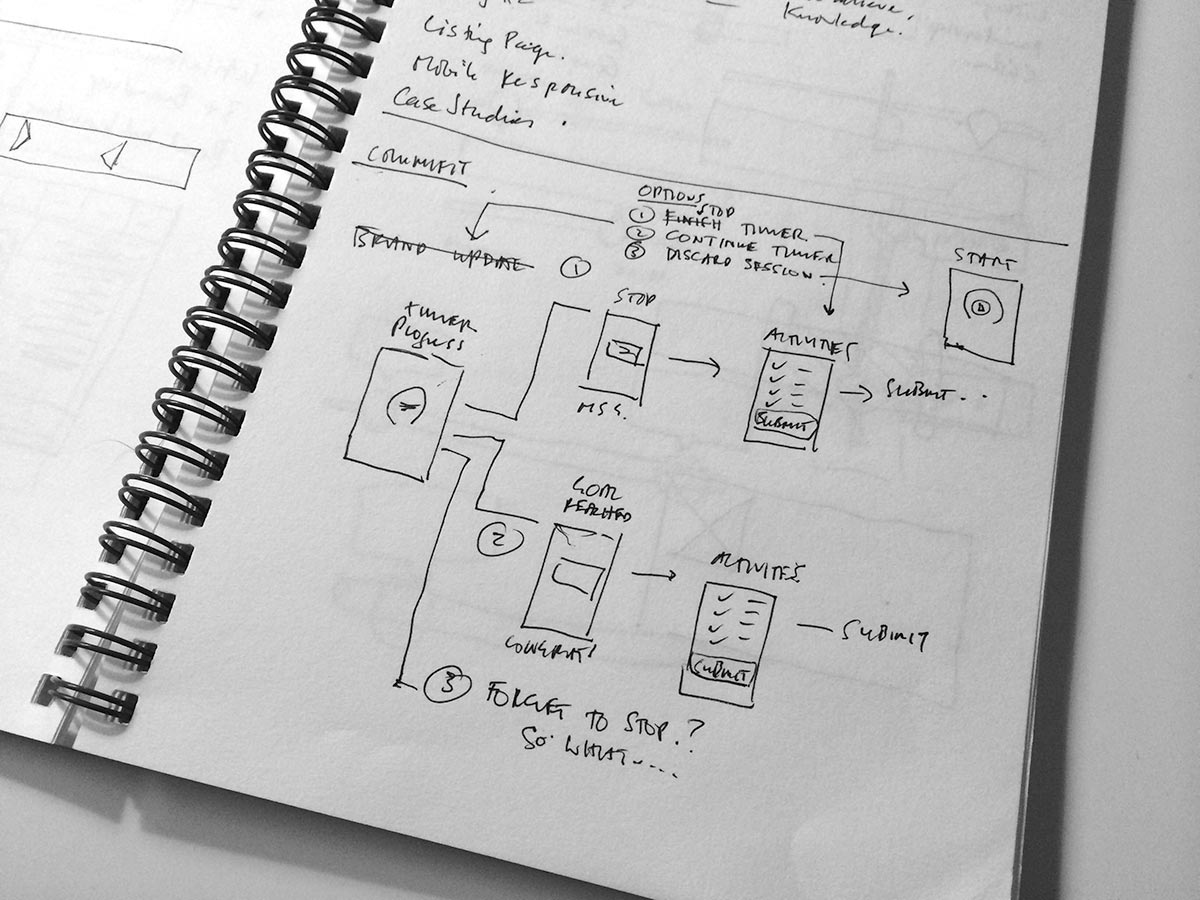 Knowledge.
Listing Page.
Mobile Responsive
Case Studies.
COMMFIT
OPTIONS
STOP
① FINISH TIMER.
② CONTINUE TIMER
③ DISCARD SESSION.
START
BRAND UPDATE
①
STOP
TIMER
Progress
ACTIVITIES
SUBMIT
SUBMIT...
MSG.
GOAL
REACHED
②
ACTIVITIES
SUBMIT
SUBMIT
CONGRATS!
③ FORGET TO STOP.?
SO WHAT....